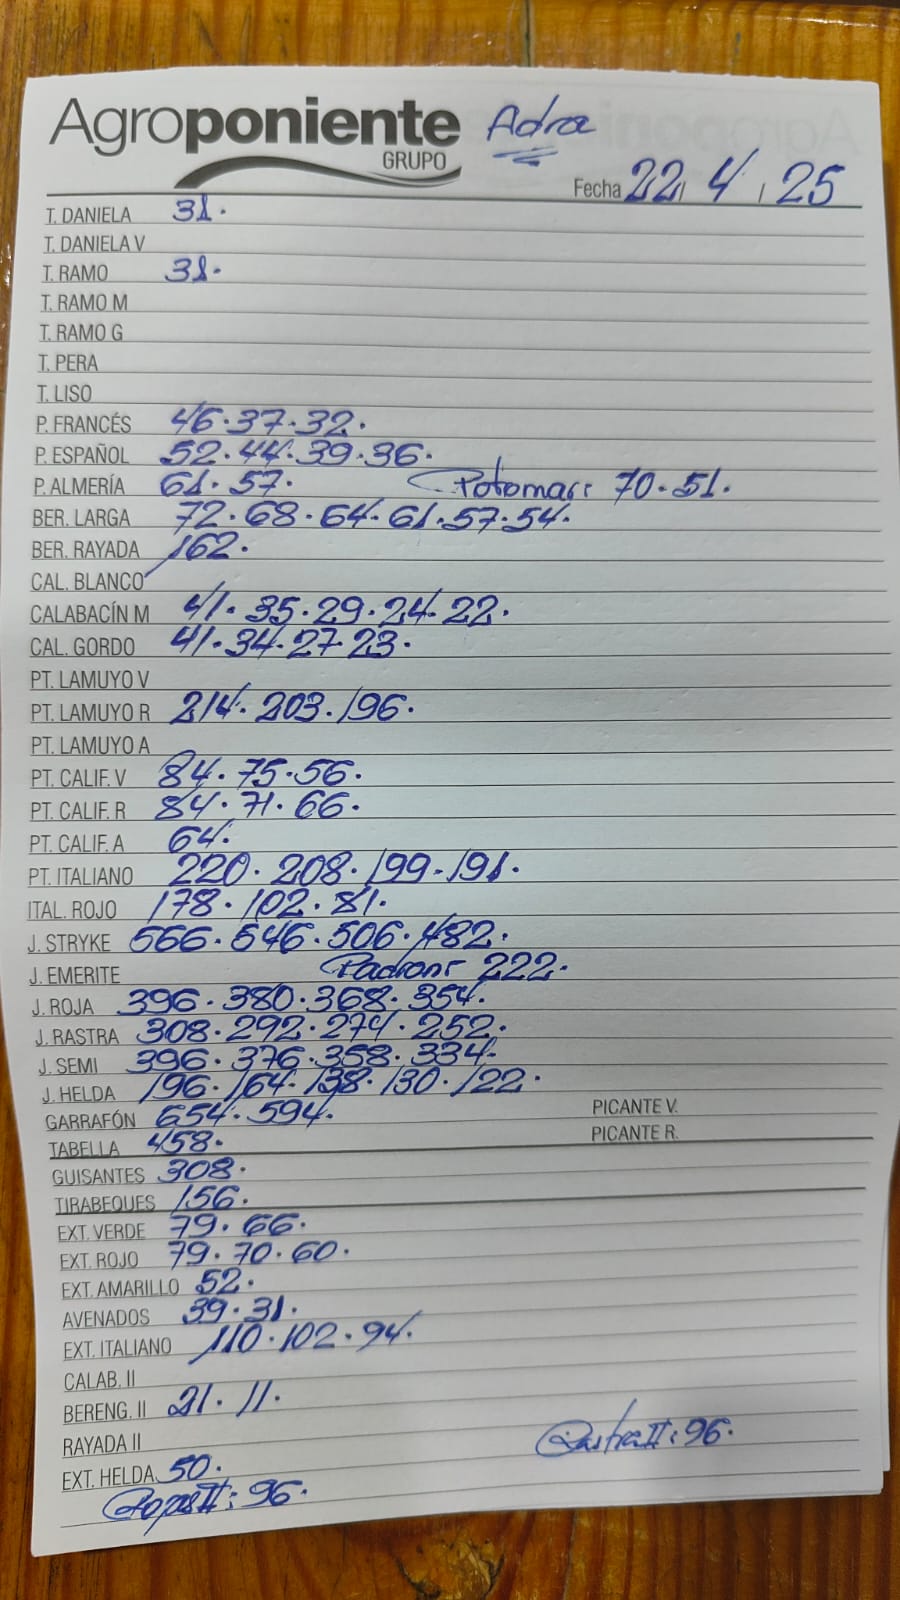 Agroponiente Adra
GRUPO
Fecha 22 / 4 / 25
T. DANIELA 31.
T. DANIELA V
T. RAMO 31.
T. RAMO M
T. RAMO G
T. PERA
T. LISO
P. FRANCÉS 46.37.32.
P. ESPAÑOL 52.44.39.36.
P. ALMERÍA 61.57. Potomac: 70.51.
BER. LARGA 72.68.64.61.57.54.
BER. RAYADA 162.
CAL. BLANCO
CALABACÍN M 41.35.29.24.22.
CAL. GORDO 41.34.27.23.
PT. LAMUYO V
PT. LAMUYO R 214.203.196.
PT. LAMUYO A
PT. CALIF. V 84.75.56.
PT. CALIF. R 84.71.66.
PT. CALIF. A 64.
PT. ITALIANO 220.208.199.191.
ITAL. ROJO 178.102.81.
J. STRYKE 566.546.506.482.
J. EMERITE Padron: 222.
J. ROJA 396.380.368.354.
J. RASTRA 308.292.274.252.
J. SEMI 396.376.358.334.
J. HELDA 196.164.138.130.122.
GARRAFÓN 654.594. PICANTE V.
TABELLA 458. PICANTE R.
GUISANTES 308.
TIRABEQUES 156.
EXT. VERDE 79.66.
EXT. ROJO 79.70.60.
EXT. AMARILLO 52.
AVENADOS 39.31.
EXT. ITALIANO 110.102.94.
CALAB. II
BERENG. II 21.11.
RAYADA II Rastra II: 96.
EXT. HELDA 50.
II: 96.